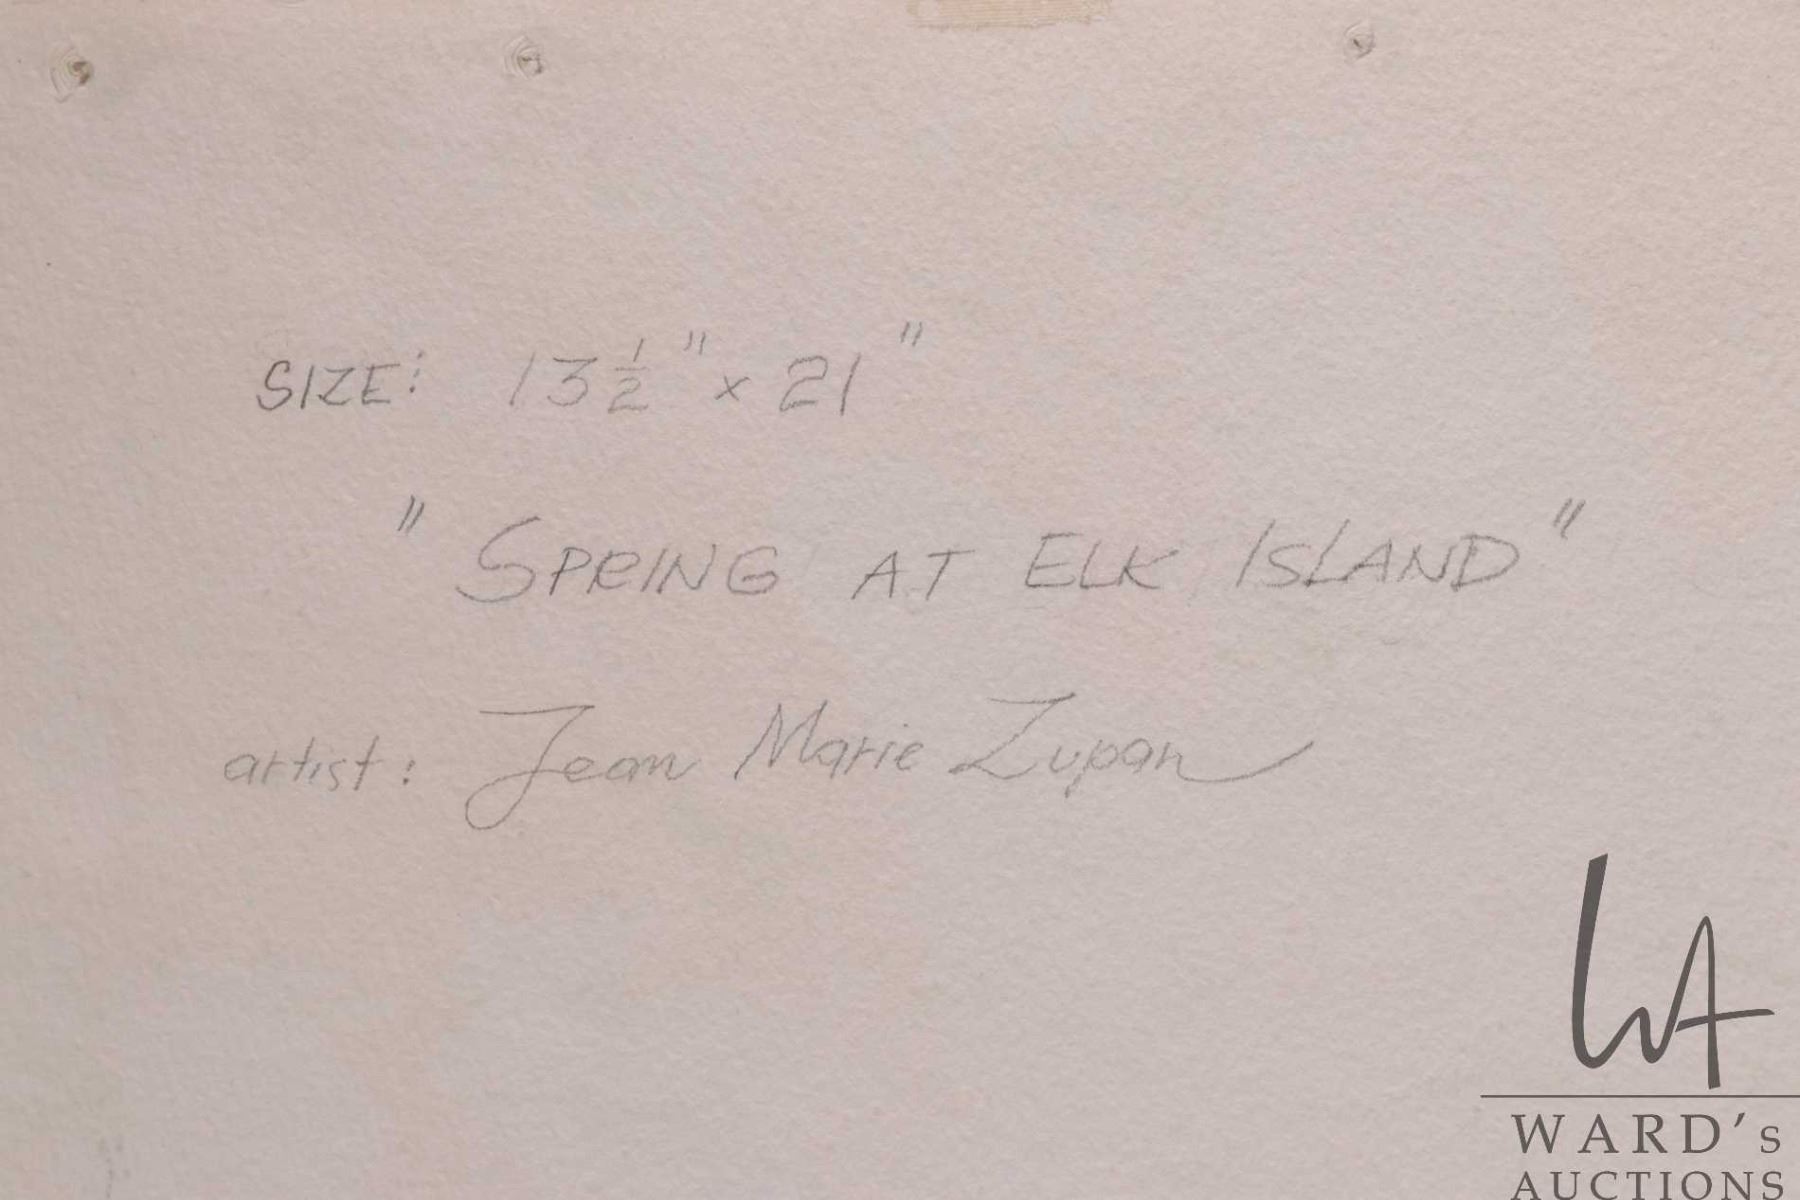 SIZE: 13 1/2" x 21"
"SPRING AT ELK ISLAND"
artist: Jean Marie Zupan
WA
WARD's
AUCTIONS